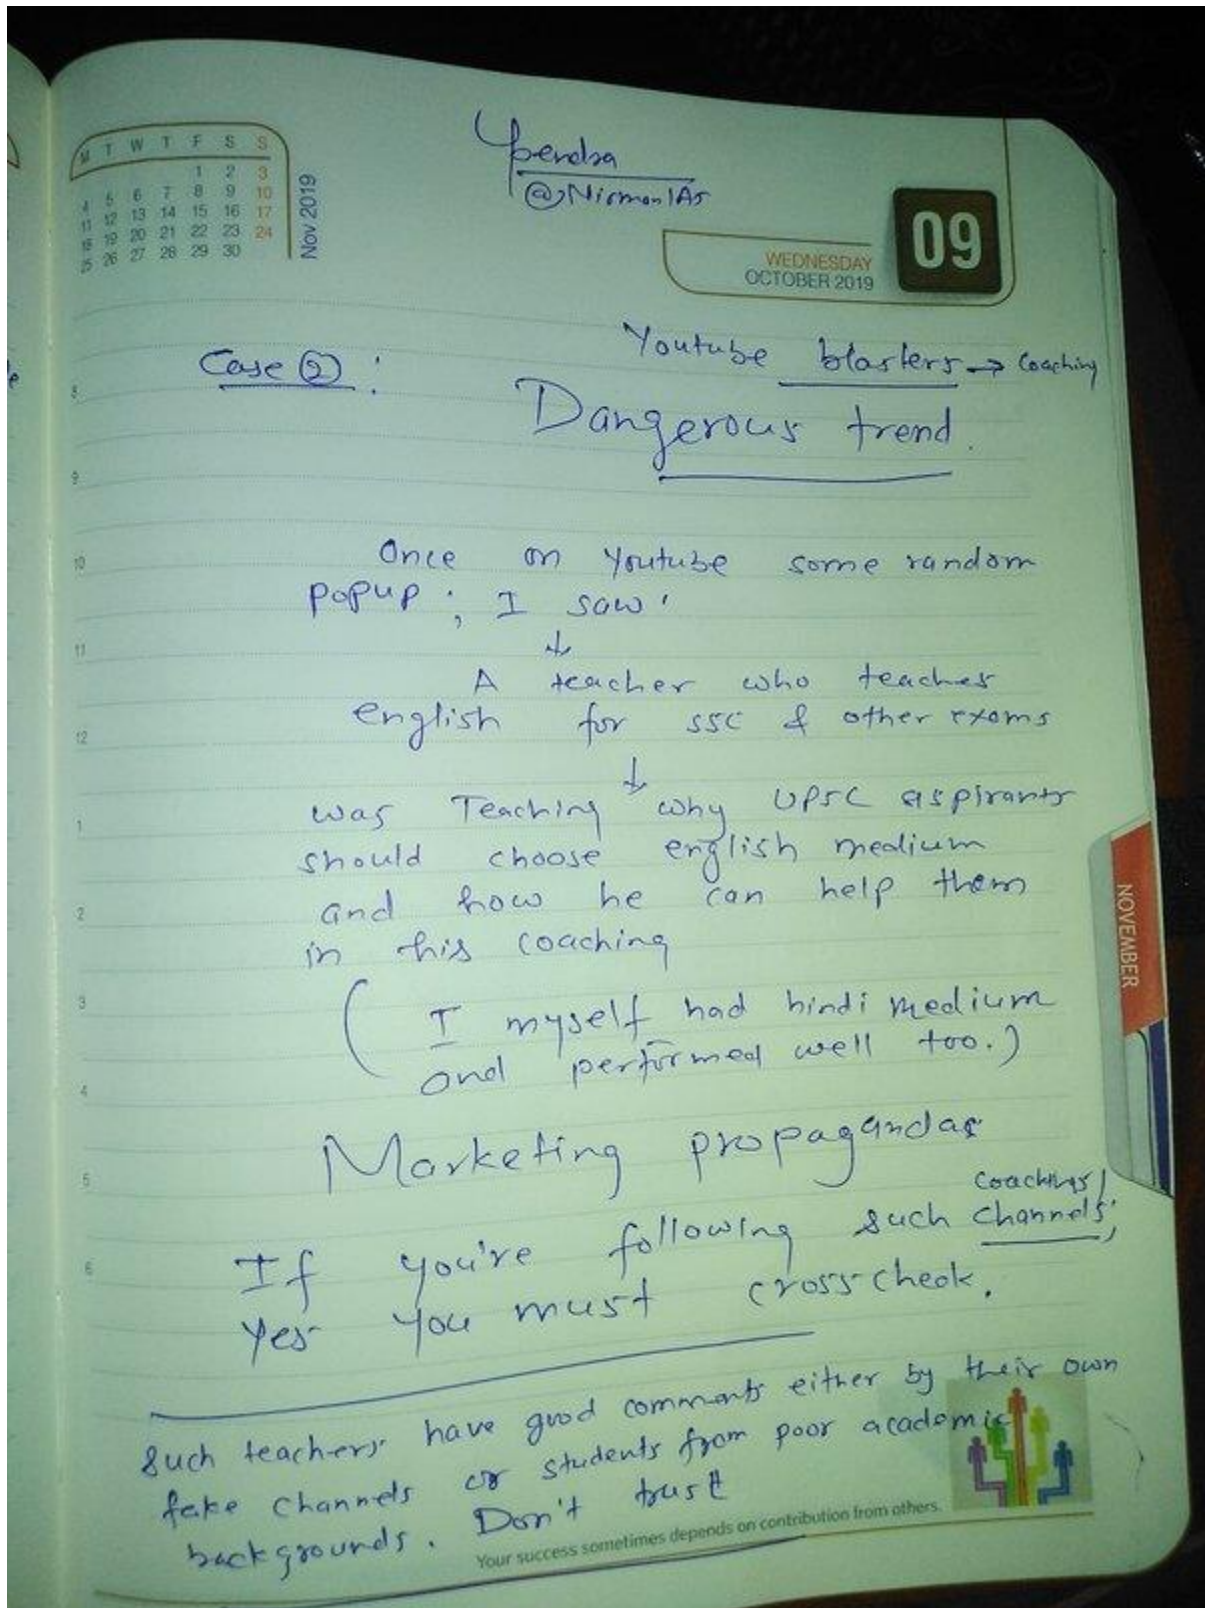 M T W T F S S
1 2 3
4 5 6 7 8 9 10
11 12 13 14 15 16 17
18 19 20 21 22 23 24
25 26 27 28 29 30
Nov 2019
Upendra
@NirmanIAS
09
WEDNESDAY
OCTOBER 2019
Youtube blasters → Coaching
Case ② :
Dangerous trend.
8
9
Once on Youtube some random
10
popup ; I saw'
11
↓
A teacher who teaches
english for SSC & other exams
12
↓
was Teaching why UPSC aspirants
1
should choose english medium
and how he can help them
2
in his coaching
( I myself had hindi medium
3
and performed well too.)
4
Marketing propagandas
5
coachings/
If you're following such channels,
6
Yes you must cross check.
Such teachers have good comments either by their own
fake channels or students from poor academic
backgrounds. Don't trust
Your success sometimes depends on contribution from others.
NOVEMBER